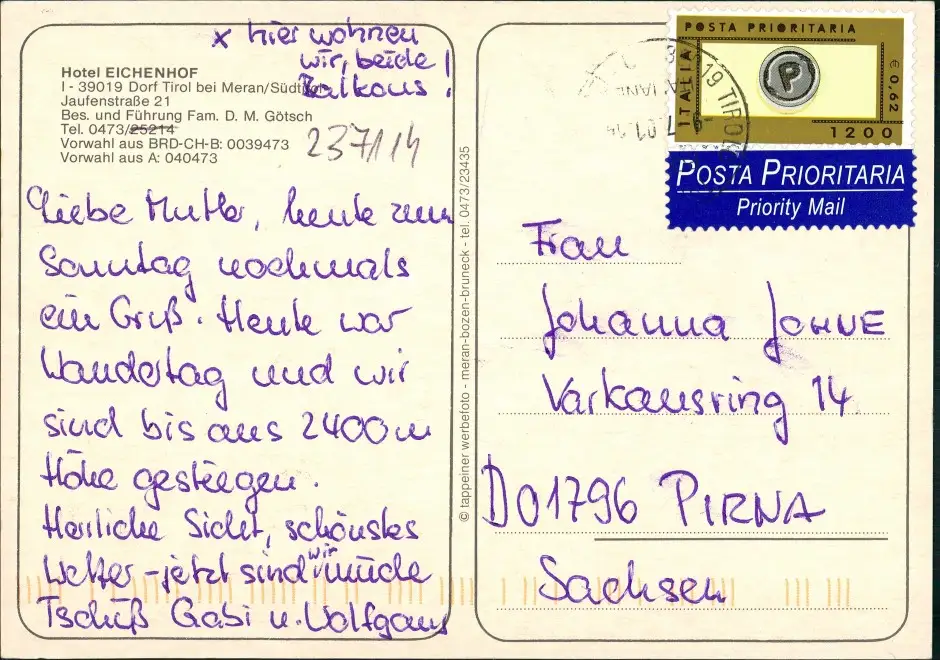 x hier wohnen
wir, beide!
Balkons!
Hotel EICHENHOF
I - 39019 Dorf Tirol bei Meran/Südtirol
Jaufenstraße 21
Bes. und Führung Fam. D. M. Götsch
Tel. 0473/25214
Vorwahl aus BRD-CH-B: 0039473
Vorwahl aus A: 040473
237114
Liebe Mutter, heute zum
Sonntag nochmals
ein Gruß. Heute war
Wandertag und wir
sind bis aus 2400m
Höhe gestiegen.
Herrliche Sicht, schönstes
Wetter - jetzt sind wir müde
Tschüß Gabi u. Wolfgang
© tappeiner werbefoto - meran-bozen-bruneck - tel. 0473/23435
POSTA PRIORITARIA
ITALIA
P
€ 0,62
1200
19 TIROL
POSTA PRIORITARIA
Priority Mail
Frau
Johanna JOHNE
Varkausring 14
D01796 PIRNA
Sachsen